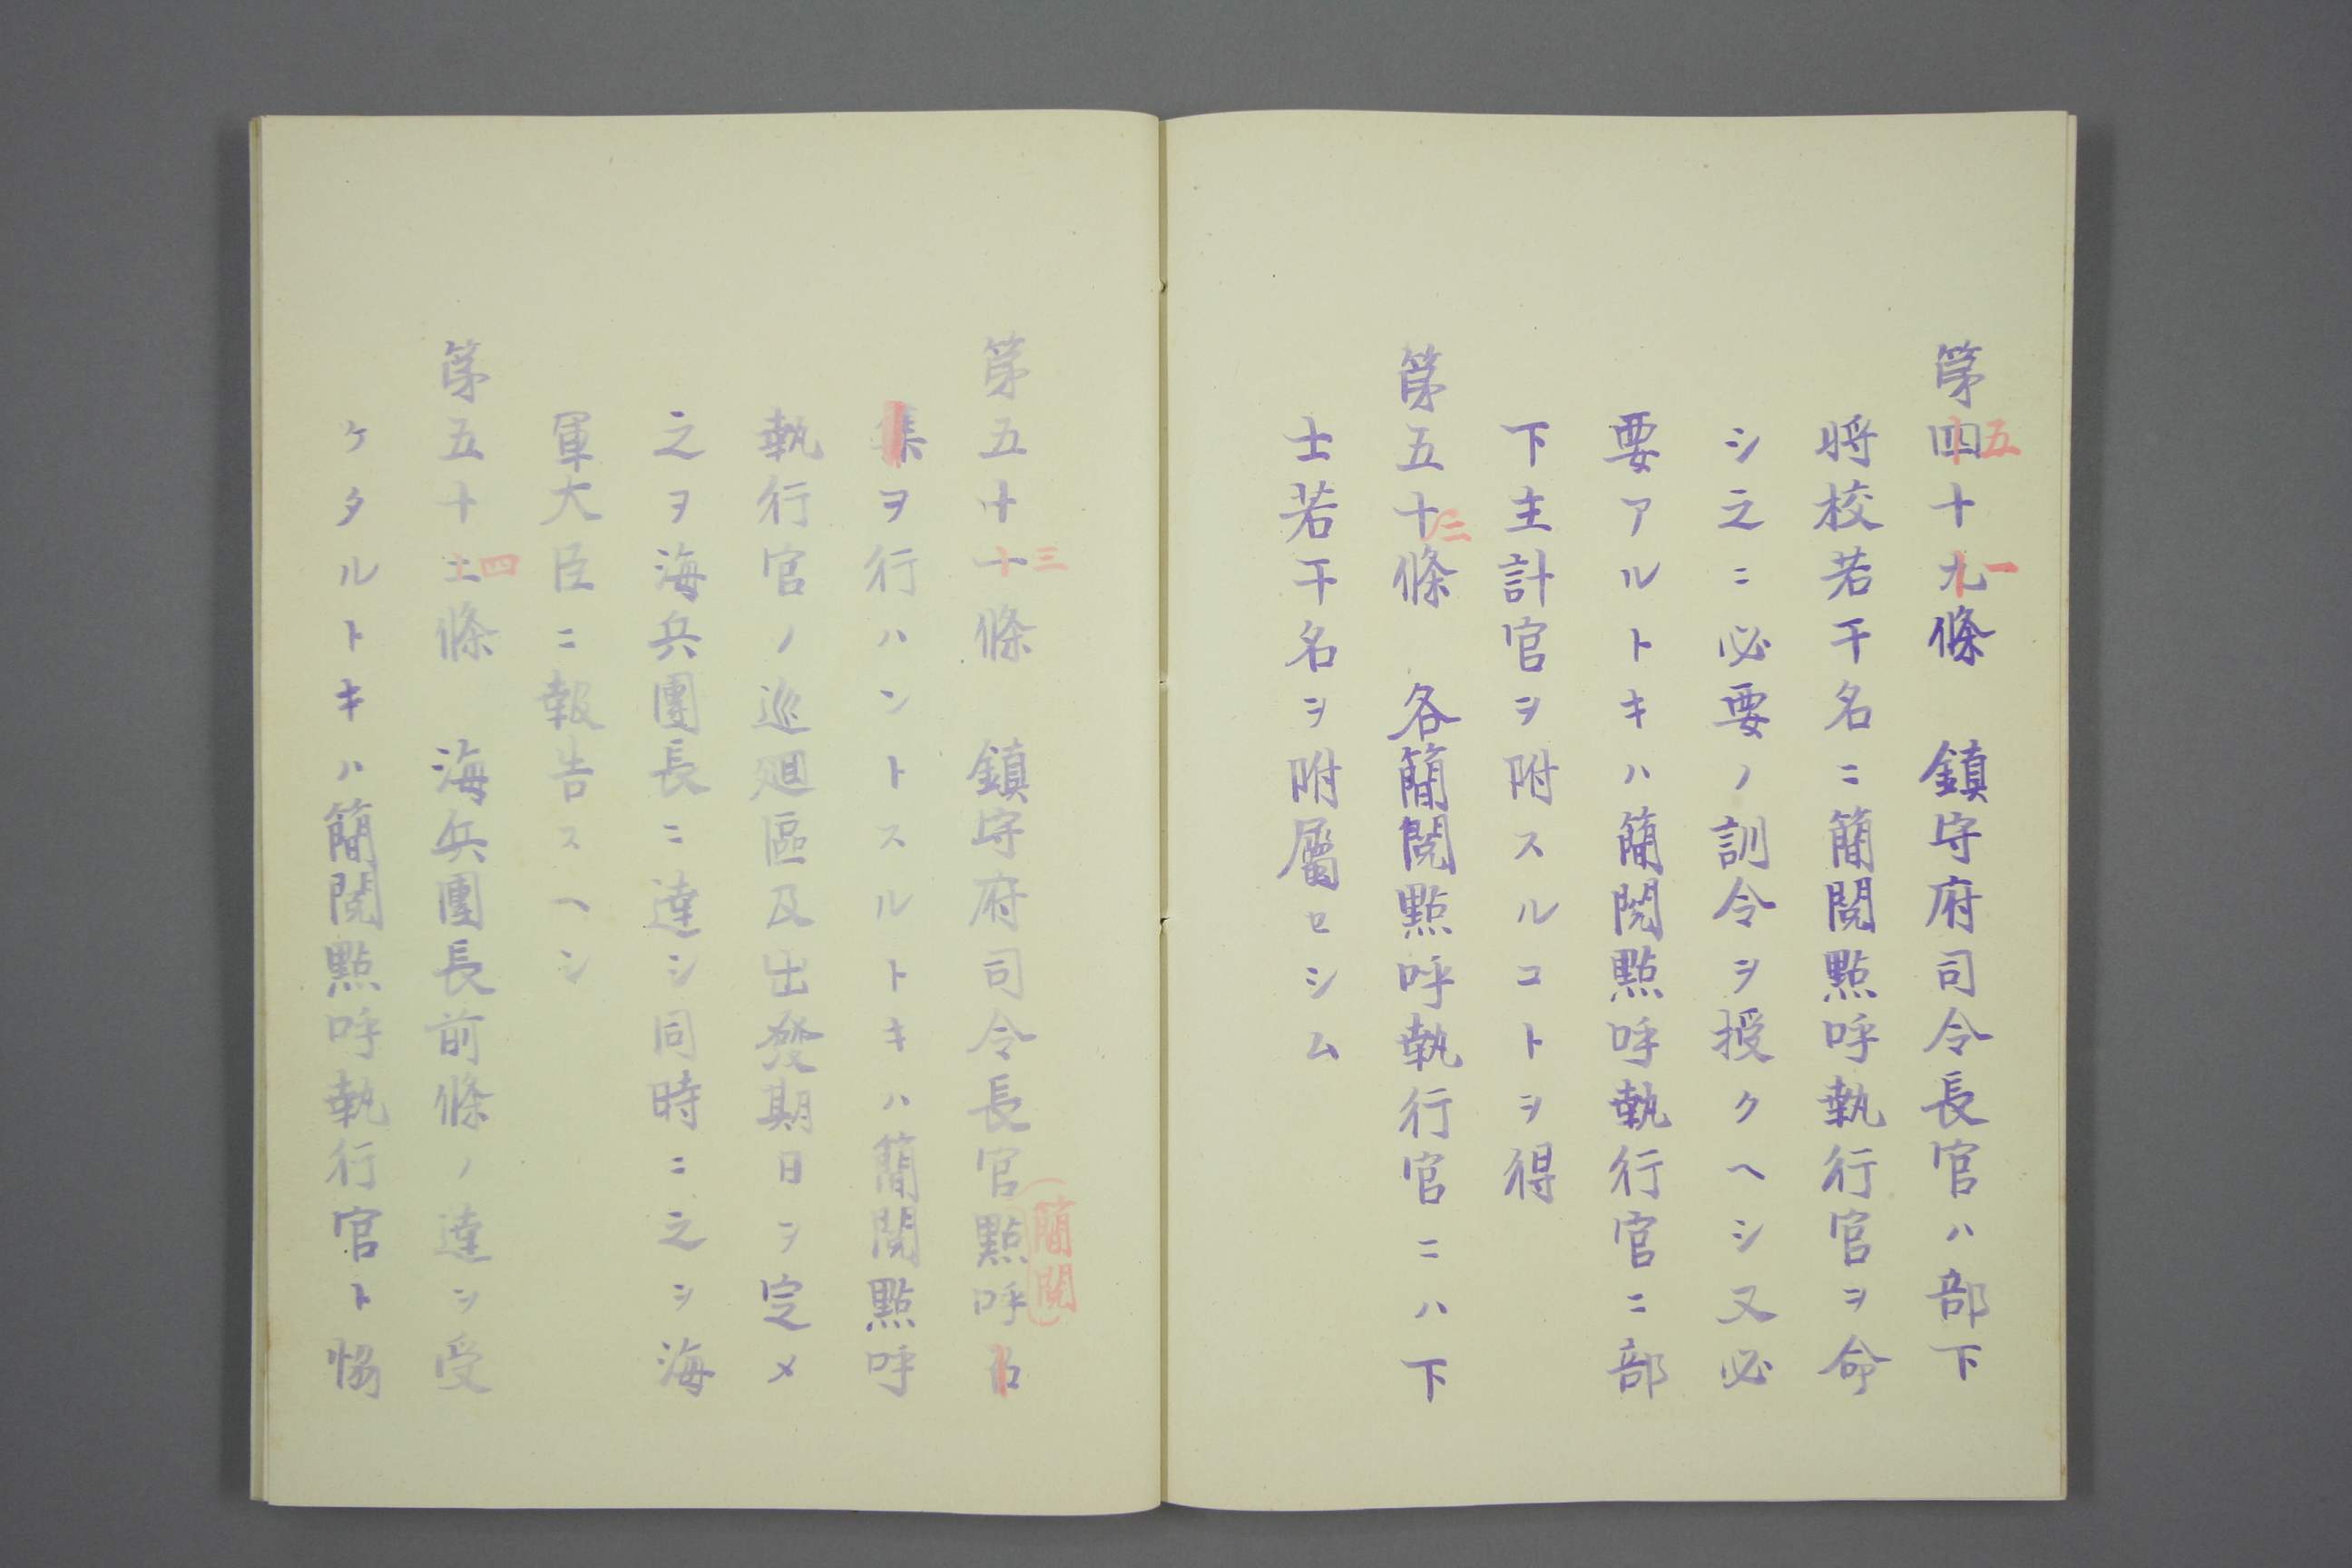 第四十九條　鎮守府司令長官ハ部下
五
一
將校若干名ニ簡閲點呼執行官ヲ命
シ之ニ必要ノ訓令ヲ授クヘシ又必
要アルトキハ簡閲點呼執行官ニ部
下主計官ヲ附スルコトヲ得
第五十條　各簡閲點呼執行官ニハ下
二
士若干名ヲ附屬セシム
第五十一條　鎮守府司令長官點呼召
三
（簡閲）
集ヲ行ハントスルトキハ簡閲點呼
執行官ノ巡廻區及出發期日ヲ定メ
之ヲ海兵團長ニ達シ同時ニ之ヲ海
軍大臣ニ報告スヘシ
第五十二條　海兵團長前條ノ達ヲ受
四
ケタルトキハ簡閲點呼執行官ト協